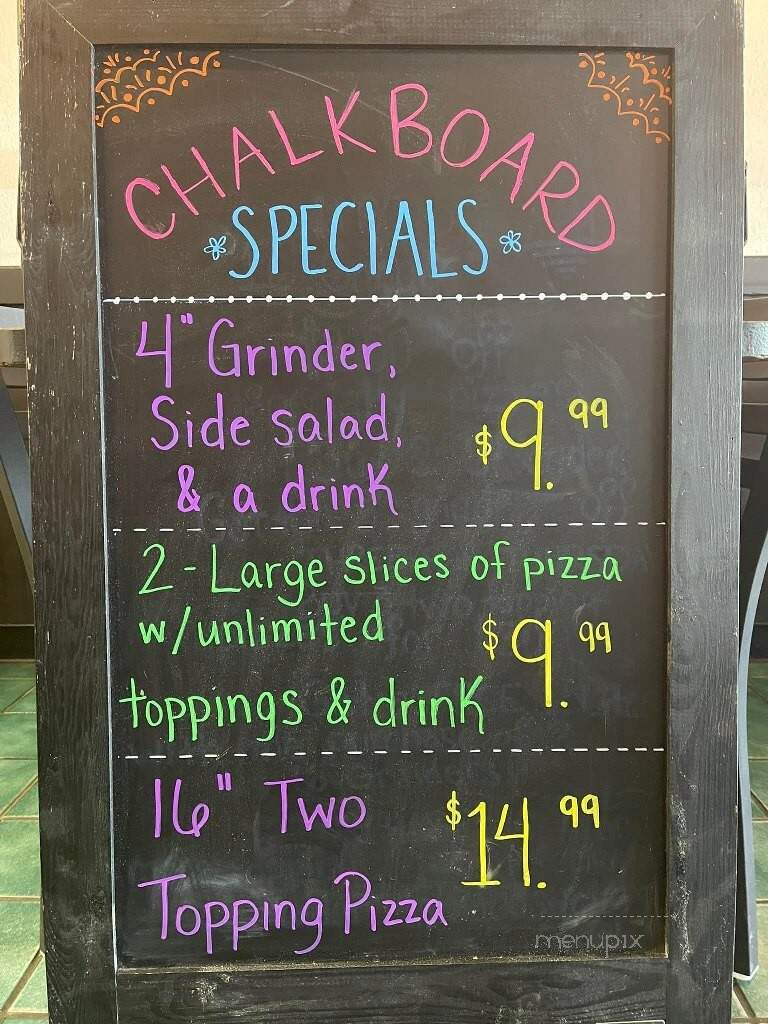 CHALKBOARD
SPECIALS
4" Grinder,
Side salad,
& a drink
$9.99
2-Large slices of pizza
w/unlimited
toppings & drink
$9.99
16" Two
Topping Pizza
$14.99
menupix